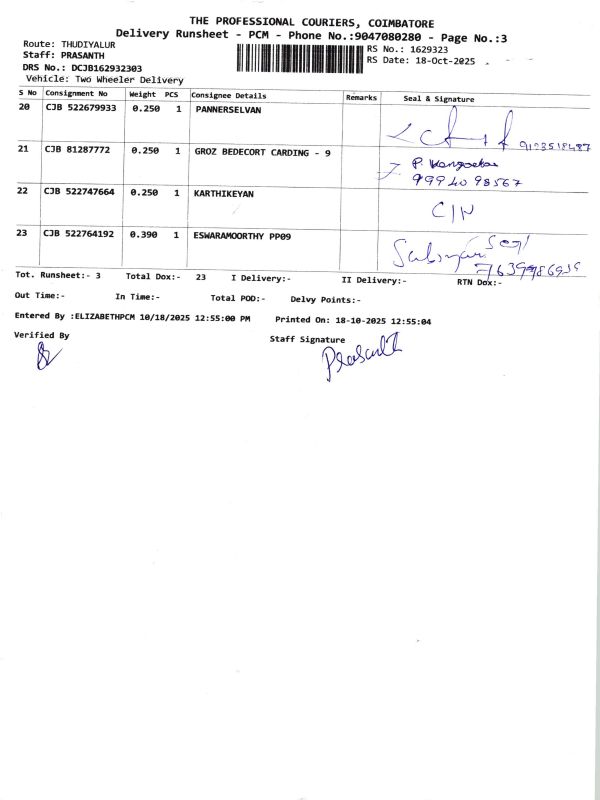 THE PROFESSIONAL COURIERS, COIMBATORE
Delivery Runsheet - PCM - Phone No.:9047080280 - Page No.:3
Route: THUDIYALUR
RS No.: 1629323
Staff: PRASANTH
RS Date: 18-Oct-2025
DRS No.: DCJB162932303
Vehicle: Two Wheeler Delivery
S No Consignment No Weight PCS Consignee Details Remarks Seal & Signature
20 CJB 522679933 0.250 1 PANNERSELVAN
9123518487
21 CJB 81287772 0.250 1 GROZ BEDECORT CARDING - 9 P.
99940 98567
22 CJB 522747664 0.250 1 KARTHIKEYAN C/N
23 CJB 522764192 0.390 1 ESWARAMOORTHY PP09
Tot. Runsheet:- 3 Total Dox:- 23 I Delivery:- II Delivery:- RTN Dox:-
Out Time:- In Time:- Total POD:- Delvy Points:-
Entered By :ELIZABETHPCM 10/18/2025 12:55:00 PM Printed On: 18-10-2025 12:55:04
Verified By Staff Signature
Prasanth